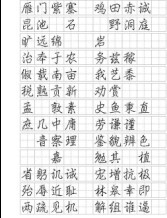 雁门紫塞 鸡田赤诚
昆池 石 野洞庭
旷远绵 岩
治本于农 务兹稼
俶载南亩 我艺黍
税熟贡新 劝赏
孟 敦素 史鱼秉直
庶几中庸 劳谦谨
音察理 鉴貌辨色
嘉 勉其 植
省躬讥诫 宠增抗极
殆辱近耻 林皋幸即
两疏见机 解组谁逼